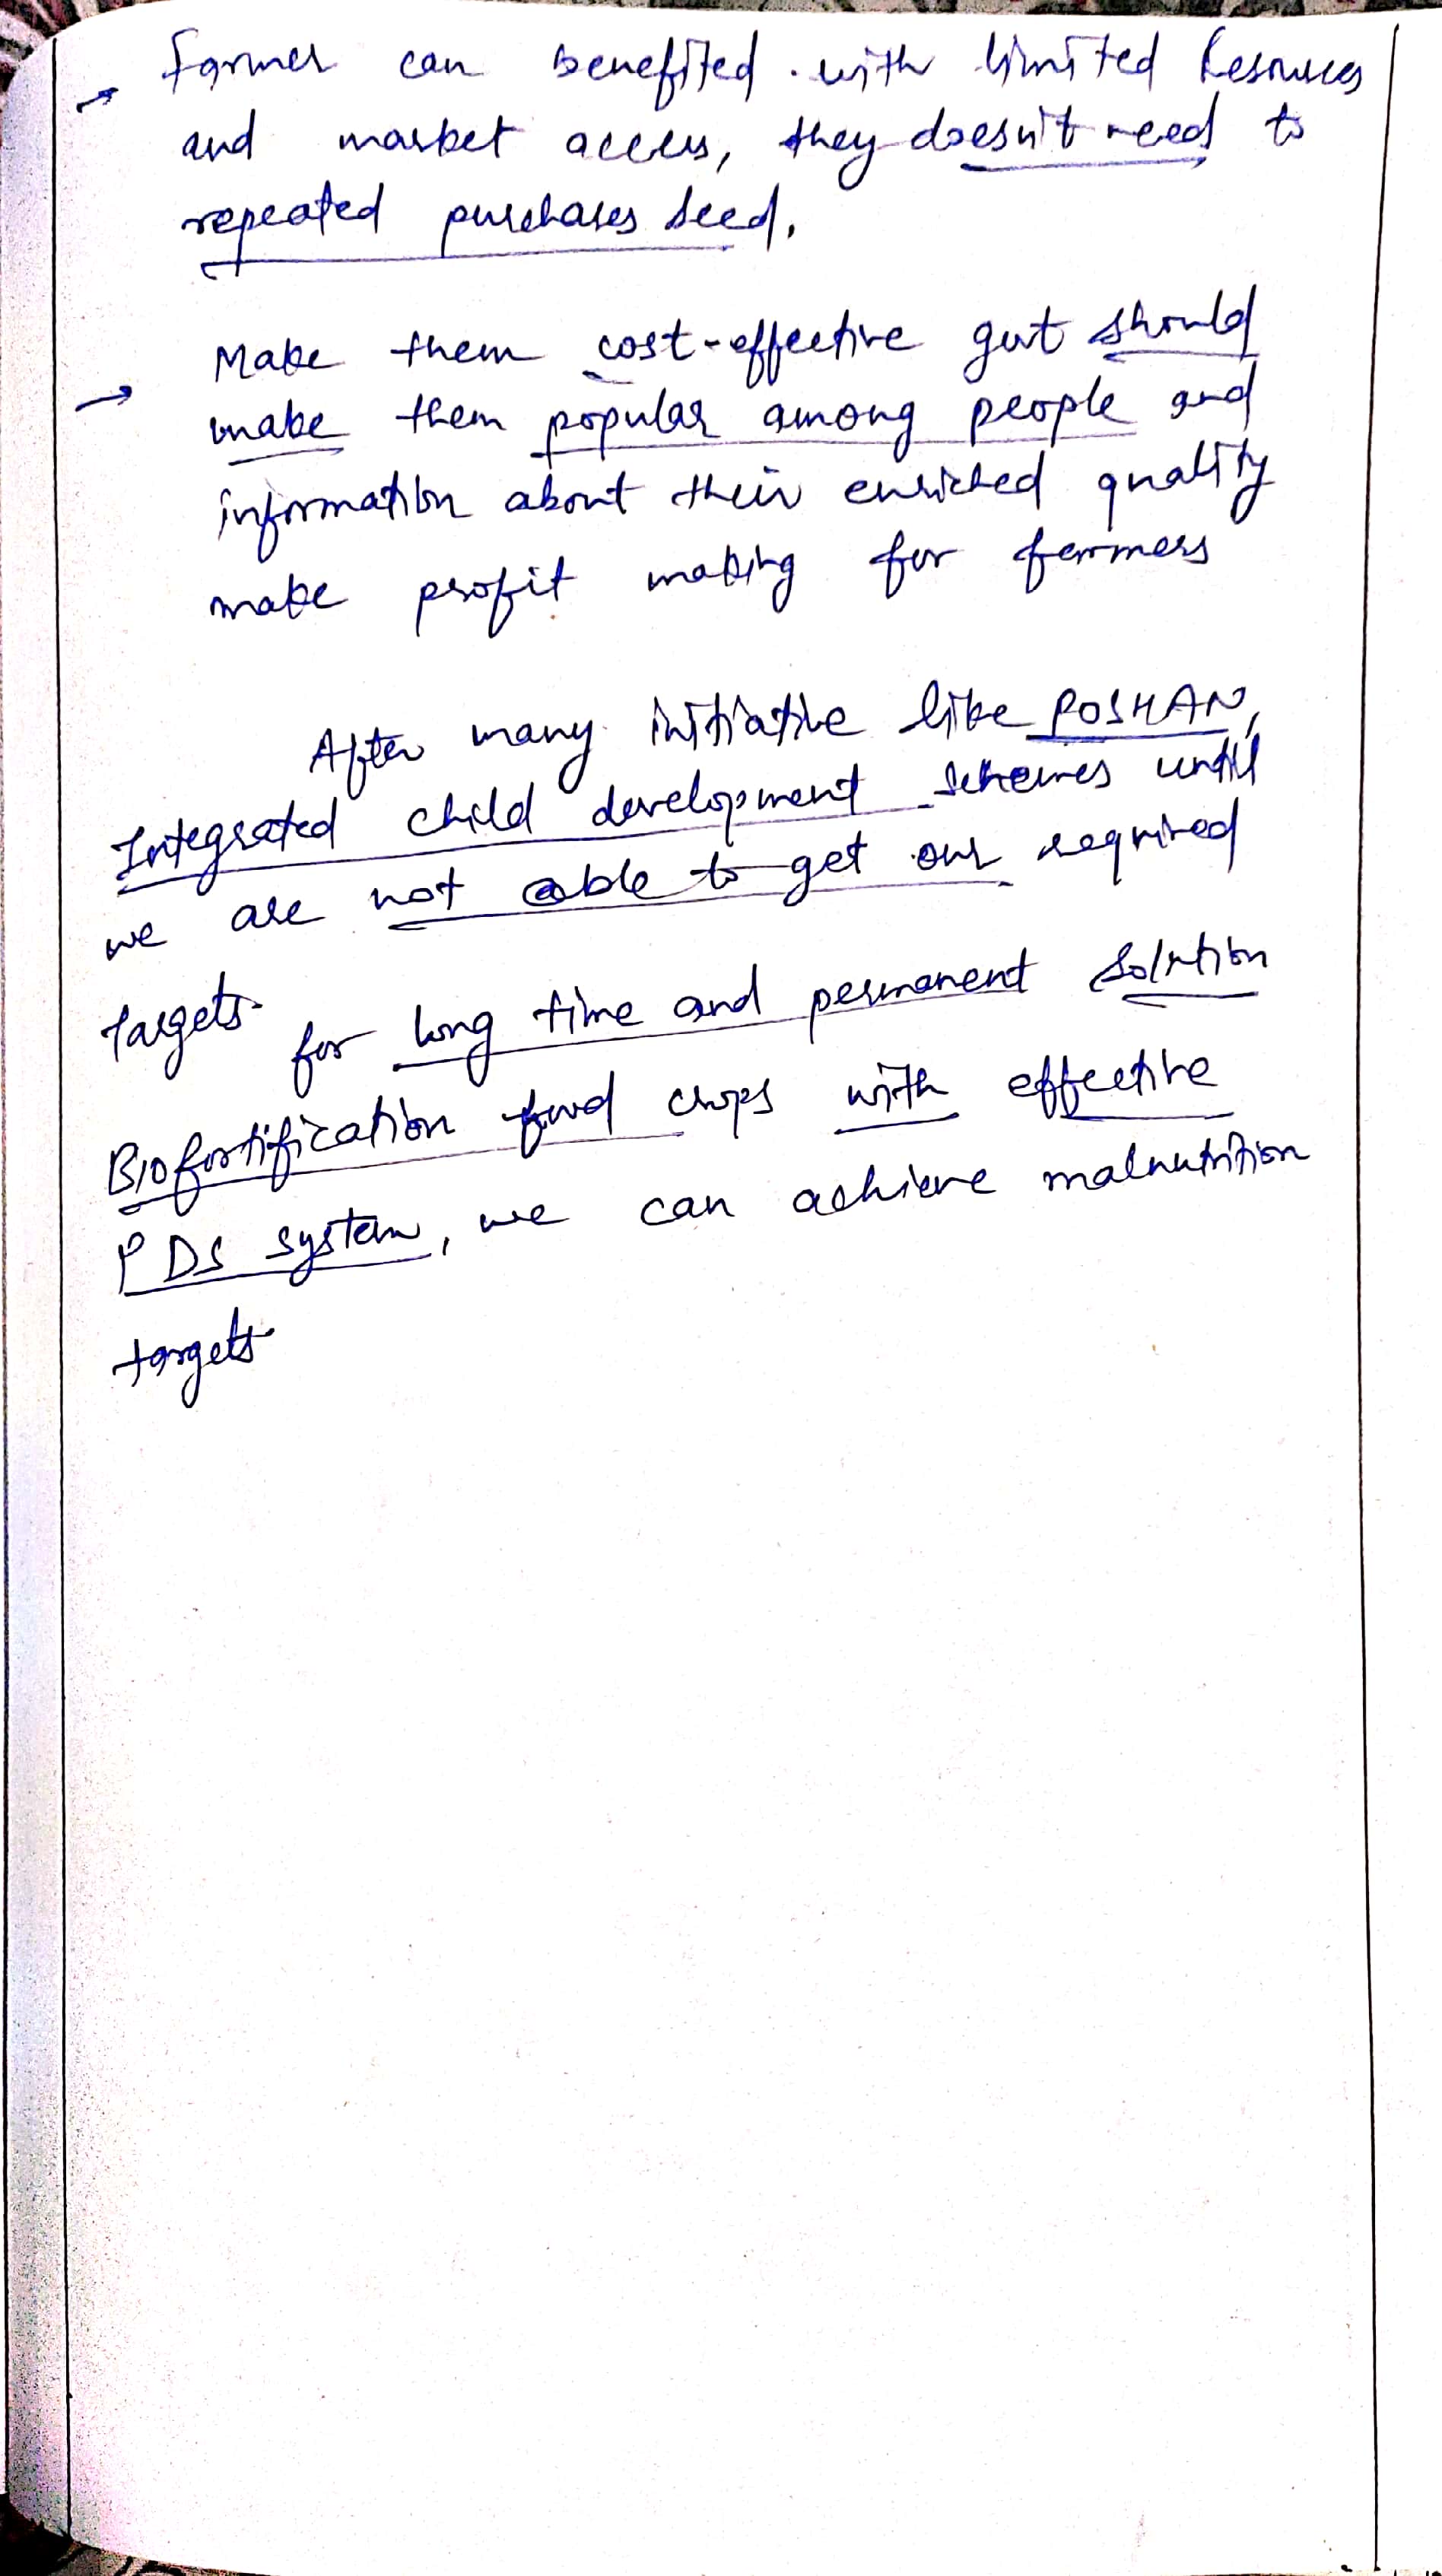 → Farmer can benefited. with limited Resources
and market access, they doesn't need to
repeated purchases seed.
→ Make them cost-effective gut should
make them popular among people and
information about their enriched quality
make profit making for farmers
After many initiative like POSHAN,
Integrated child development schemes until
we are not able to get our required
targets.
for long time and permanent solution
Biofortification food crops with effective
PDS system, we can achieve malnutrition
targets